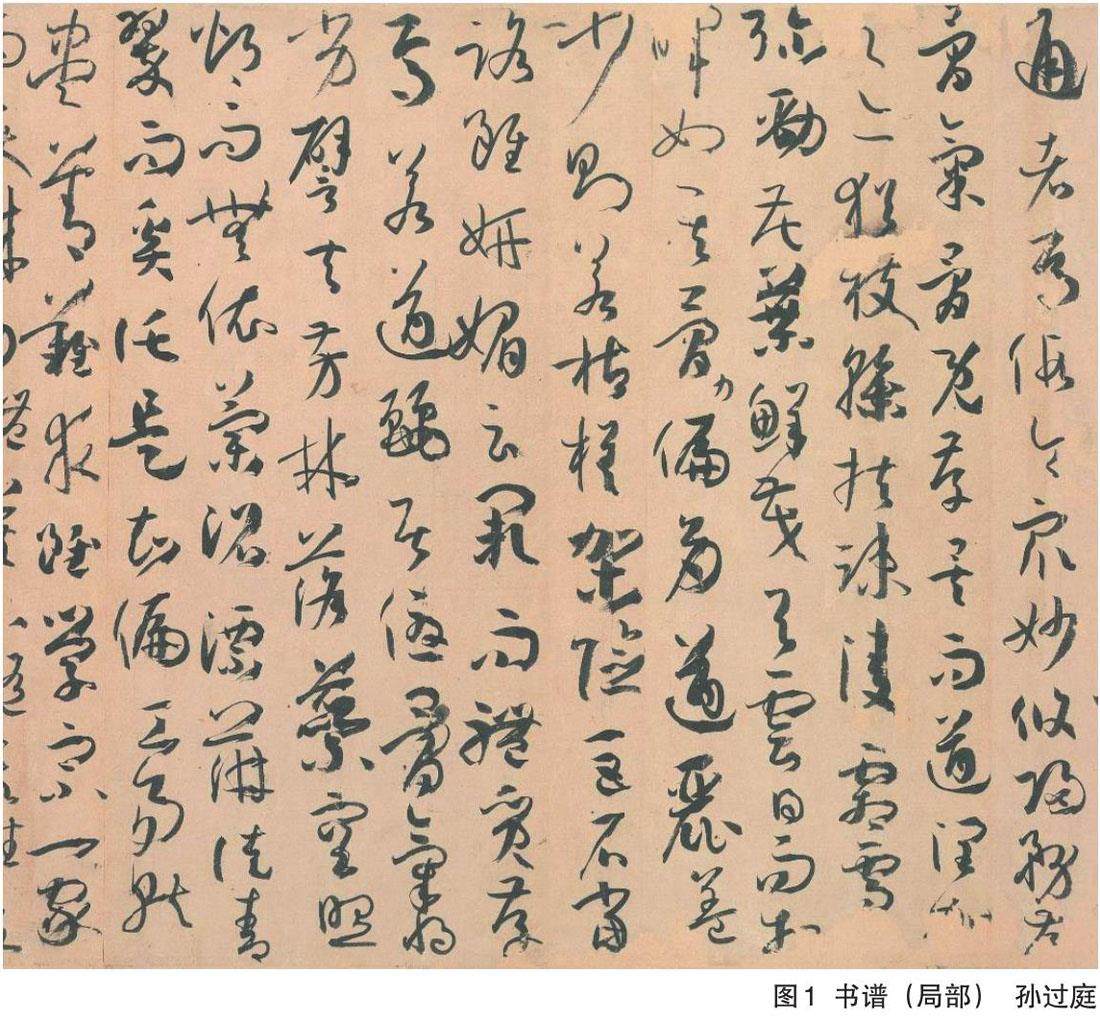 通者焉假令眾妙攸歸務存
骨氣骨既存矣而遒潤加
之亦猶枝幹扶疎凌霜雪
彌勁花葉鮮茂與雲日而相
暉如其骨力偏多遒麗蓋
少則若枯槎架險巨石當
路雖妍媚云闕而體質存
焉若遒麗居優骨氣將
劣譬夫芳林落蘂空照
灼而無依蘭沼漂蓱徒青
翠而奚託是知偏工易就
盡善難求雖學宗一家
图1 书谱（局部） 孙过庭